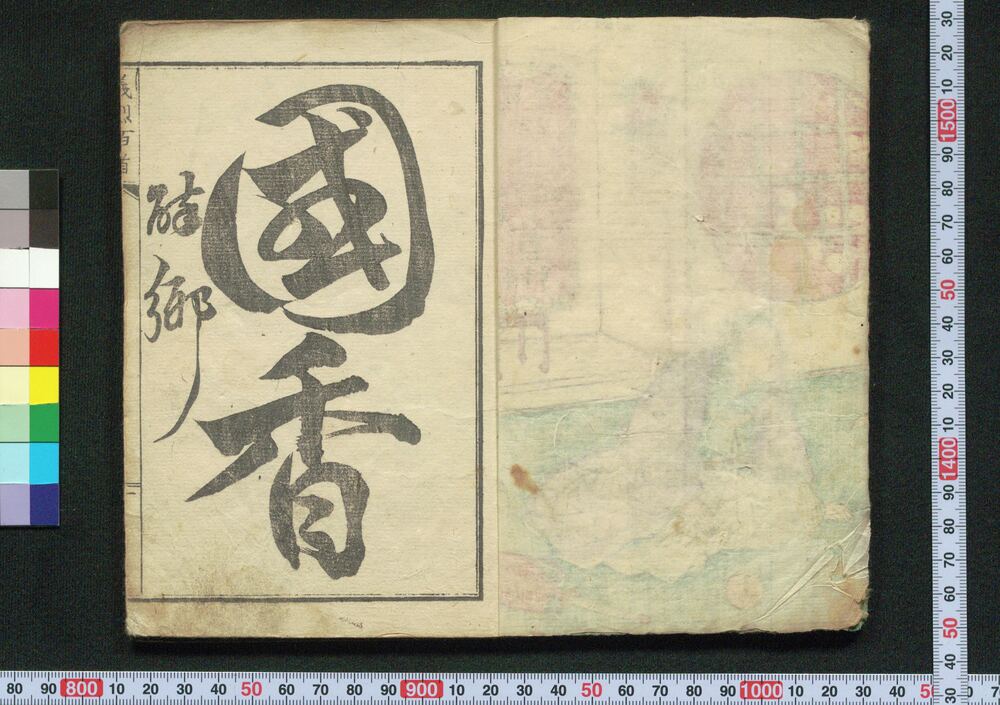 國香
酔郷
義烈百首
30 20 10 1500 90 80 70 60 50 40 30 20 10 1400 90 80 70 60 50 40 30
80 90 800 10 20 30 40 50 60 70 80 90 900 10 20 30 40 50 60 70 80 90 1000 10 20 30 40